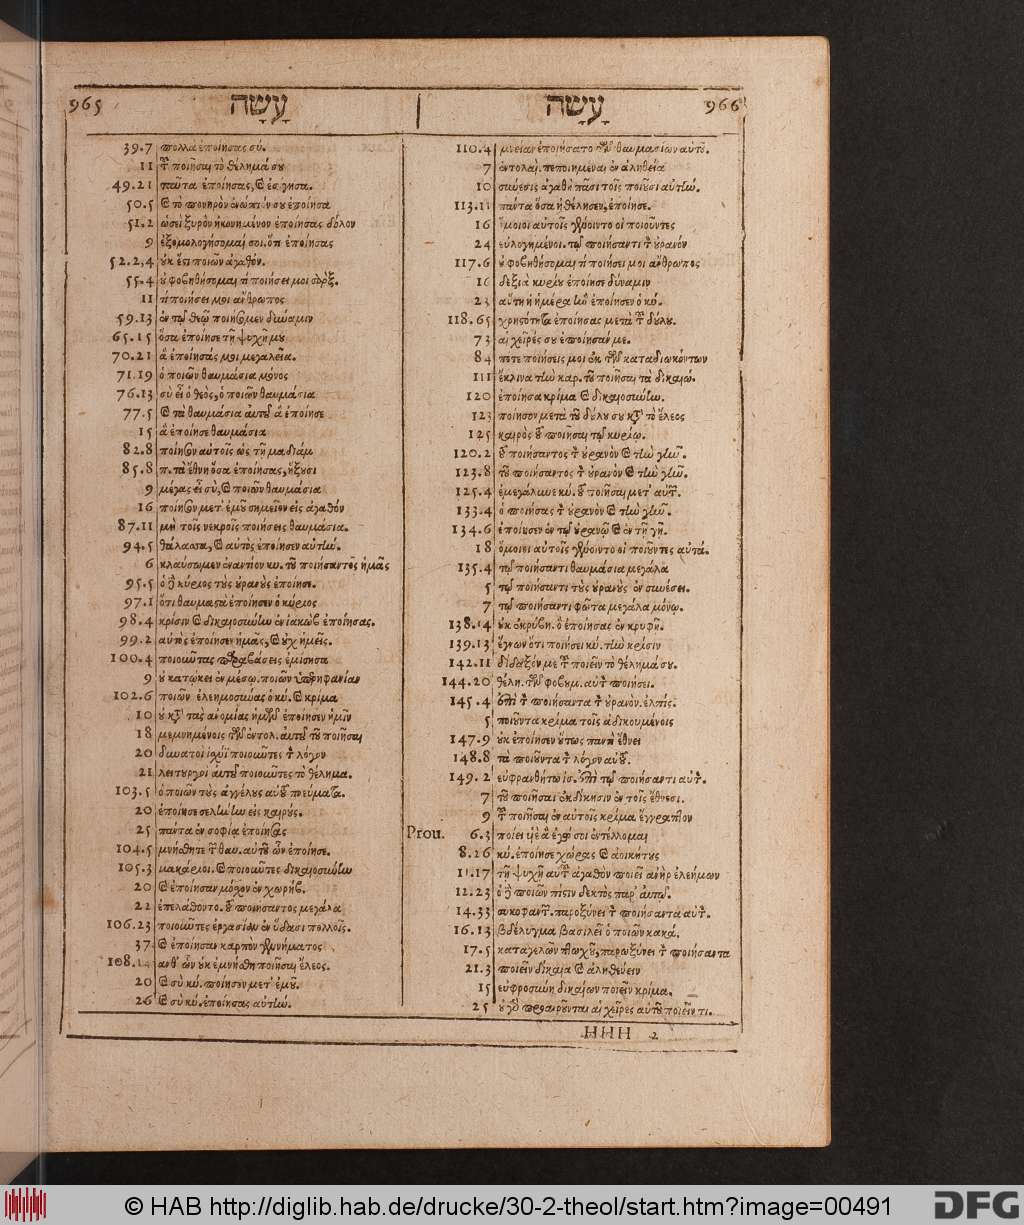 965 עָשָׂה
39.7 πολλὰ ἐποίησας σύ.
11 τοῦ ποιῆσαι τὸ θέλημά σου
49.21 ταῦτα ἐποίησας, καὶ ἐσίγησα.
50.5 καὶ τὸ πονηρὸν ἐνώπιόν σου ἐποίησα
51.2 ὡσεὶ ξυρὸν ἠκονημένον ἐποίησας δόλον
9 ἐξομολογήσομαί σοι. ὅτι ἐποίησας
52.2,4 οὐκ ἔστι ποιῶν ἀγαθόν.
55.4 οὐ φοβηθήσομαι τί ποιήσει μοι σάρξ.
11 τί ποιήσει μοι ἄνθρωπος
59.13 ἐν τῷ θεῷ ποιήσομεν δύναμιν
65.15 ὅσα ἐποίησε τῇ ψυχῇ μου
70.21 ἃ ἐποίησάς μοι μεγαλεῖα.
71.19 ὁ ποιῶν θαυμάσια μόνος
76.13 σὺ εἶ ὁ θεὸς, ὁ ποιῶν θαυμάσια
77.5 καὶ τὰ θαυμάσια αὐτοῦ ἃ ἐποίησε
15 ἃ ἐποίησε θαυμάσια
82.8 ποίησον αὐτοῖς ὡς τῇ μαδιάμ
85.8 π. τὰ ἔθνη ὅσα ἐποίησας, ἥξουσι
9 μέγας εἶ σὺ, καὶ ποιῶν θαυμάσια
16 ποίησον μετ' ἐμοῦ σημεῖον εἰς ἀγαθόν
87.11 μὴ τοῖς νεκροῖς ποιήσεις θαυμάσια.
94.5 θάλασσα, καὶ αὐτὸς ἐποίησεν αὐτήν.
6 κλαύσωμεν ἐναντίον κυ. τοῦ ποιήσαντος ἡμᾶς
95.5 ὁ δὲ κύριος τοὺς οὐρανοὺς ἐποίησε.
97.1 ὅτι θαυμαστὰ ἐποίησεν ὁ κύριος
98.4 κρίσιν καὶ δικαιοσύνην ἐν ἰακὼβ ἐποίησας.
99.2 αὐτὸς ἐποίησεν ἡμᾶς, καὶ οὐχ ἡμεῖς.
100.4 ποιοῦντας παραβάσεις ἐμίσησα
9 οὐ κατῴκει ἐν μέσῳ. ποιῶν ὑπερηφανίαν
102.6 ποιῶν ἐλεημοσύνας ὁ κύ. καὶ κρίμα
10 οὐ κατὰ τὰς ἀνομίας ἡμῶν ἐποίησεν ἡμῖν
18 μεμνημένοις τῶν ἐντολ. αὐτοῦ τοῦ ποιῆσαι
20 δυνατοὶ ἰσχύϊ ποιοῦντες τὸν λόγον
21 λειτουργοὶ αὐτοῦ ποιοῦντες τὸ θέλημα.
103.5 ὁ ποιῶν τοὺς ἀγγέλους αὐτοῦ πνεύματα.
20 ἐποίησε σελήνην εἰς καιρούς.
25 πάντα ἐν σοφίᾳ ἐποίησας
104.5 μνήσθητε τῶν θαυ. αὐτοῦ ὧν ἐποίησε.
105.3 μακάριοι. καὶ ποιοῦντες δικαιοσύνην
20 καὶ ἐποίησαν μόσχον ἐν χωρήβ.
22 ἐπελάθοντο. τοῦ ποιήσαντος μεγάλα
106.23 ποιοῦντες ἐργασίαν ἐν ὕδασι πολλοῖς.
37 καὶ ἐποίησαν καρπὸν γεννήματος
108.1 ἀνθ' ὧν οὐκ ἐμνήσθη ποιῆσαι ἔλεος.
20 καὶ σὺ κύ. ποίησον μετ' ἐμοῦ.
26 καὶ σὺ κύ. ἐποίησας αὐτήν.
עָשָׂה 966
110.4 μνείαν ἐποιήσατο τῶν θαυμασίων αὐτοῦ.
7 ἐντολαὶ. πεποιημέναι ἐν ἀληθείᾳ
10 σύνεσις ἀγαθὴ πᾶσι τοῖς ποιοῦσι αὐτήν.
113.11 πάντα ὅσα ἠθέλησεν, ἐποίησε.
16 ὅμοιοι αὐτοῖς γένοιντο οἱ ποιοῦντες
24 εὐλογημένοι. τῷ ποιήσαντι τὸν οὐρανόν
117.6 οὐ φοβηθήσομαι τί ποιήσει μοι ἄνθρωπος
16 δεξιὰ κυρίου ἐποίησε δύναμιν
23 αὕτη ἡ ἡμέρα ἣν ἐποίησεν ὁ κύ.
118.65 χρηστότητα ἐποίησας μετὰ τοῦ δούλου.
73 αἱ χεῖρές σου ἐποίησάν με.
84 πότε ποιήσεις μοι ἐκ τῶν καταδιωκόντων
111 ἔκλινα τὴν καρ. τοῦ ποιῆσαι τὰ δικαιώ.
120 ἐποίησα κρίμα καὶ δικαιοσύνην.
123 ποίησον μετὰ τοῦ δούλου σου κατὰ τὸ ἔλεος
125 καιρὸς τοῦ ποιῆσαι τῷ κυρίῳ.
120.2 τοῦ ποιήσαντος τὸν οὐρανὸν καὶ τὴν γῆν.
123.8 τοῦ ποιήσαντος τὸν οὐρανὸν καὶ τὴν γῆν.
125.4 ἐμεγάλυνε κύ. τοῦ ποιῆσαι μετ' αὐτῶν.
133.4 ὁ ποιήσας τὸν οὐρανὸν καὶ τὴν γῆν.
134.6 ἐποίησεν ἐν τῷ οὐρανῷ καὶ ἐν τῇ γῇ.
18 ὅμοιοι αὐτοῖς γένοιντο οἱ ποιοῦντες αὐτά.
135.4 τῷ ποιήσαντι θαυμάσια μεγάλα
5 τῷ ποιήσαντι τοὺς οὐρανοὺς ἐν συνέσει.
7 τῷ ποιήσαντι φῶτα μεγάλα μόνῳ.
138.14 οὐκ ἐκρύβη. ὃ ἐποίησας ἐν κρυφῇ.
139.13 ἔγνων ὅτι ποιήσει κύ. τὴν κρίσιν
142.11 δίδαξόν με τοῦ ποιεῖν τὸ θέλημά σου.
144.20 θέλη. τῶν φοβουμ. αὐτὸν ποιήσει.
145.4 ἐπὶ τὸν ποιήσαντα τὸν οὐρανὸν. ἐλπίς.
5 ποιοῦντα κρίμα τοῖς ἀδικουμένοις
147.9 οὐκ ἐποίησεν οὕτως παντὶ ἔθνει
148.8 τὰ ποιοῦντα τὸν λόγον αὐτοῦ.
149.2 εὐφρανθήτω ἰσ. ἐπὶ τῷ ποιήσαντι αὐτόν.
7 τοῦ ποιῆσαι ἐκδίκησιν ἐν τοῖς ἔθνεσι.
9 τοῦ ποιῆσαι ἐν αὐτοῖς κρίμα ἔγγραπτον
Prou. 6.3 ποίει υἱὲ ἃ ἐγώ σοι ἐντέλλομαι
8.26 κύ. ἐποίησε χώρας καὶ ἀοικήτους
11.17 τῇ ψυχῇ αὐτοῦ ἀγαθὸν ποιεῖ ἀνὴρ ἐλεήμων
12.23 ὁ δὲ ποιῶν πίστιν δεκτὸς παρ' αὐτῷ.
14.33 συκοφαντ. παροξύνει τὸν ποιήσαντα αὐτόν.
16.13 βδέλυγμα βασιλεῖ ὁ ποιῶν κακά.
17.5 καταγελῶν πτωχοῦ, παροξύνει τὸν ποιήσαντα
21.3 ποιεῖν δίκαια καὶ ἀληθεύειν
15 εὐφροσύνη δικαίων ποιεῖν κρίμα.
25 οὐ γὰρ προαιροῦνται αἱ χεῖρες αὐτοῦ ποιεῖν τι.
HHH 2
© HAB http://diglib.hab.de/drucke/30-2-theol/start.htm?image=00491
DFG